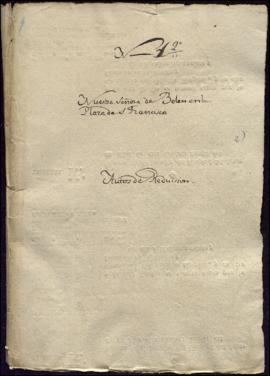 N 4 2º
Nuestra Señora de Belen en la
Plaza de S. Francisco
2)
Autos de Reduccion.